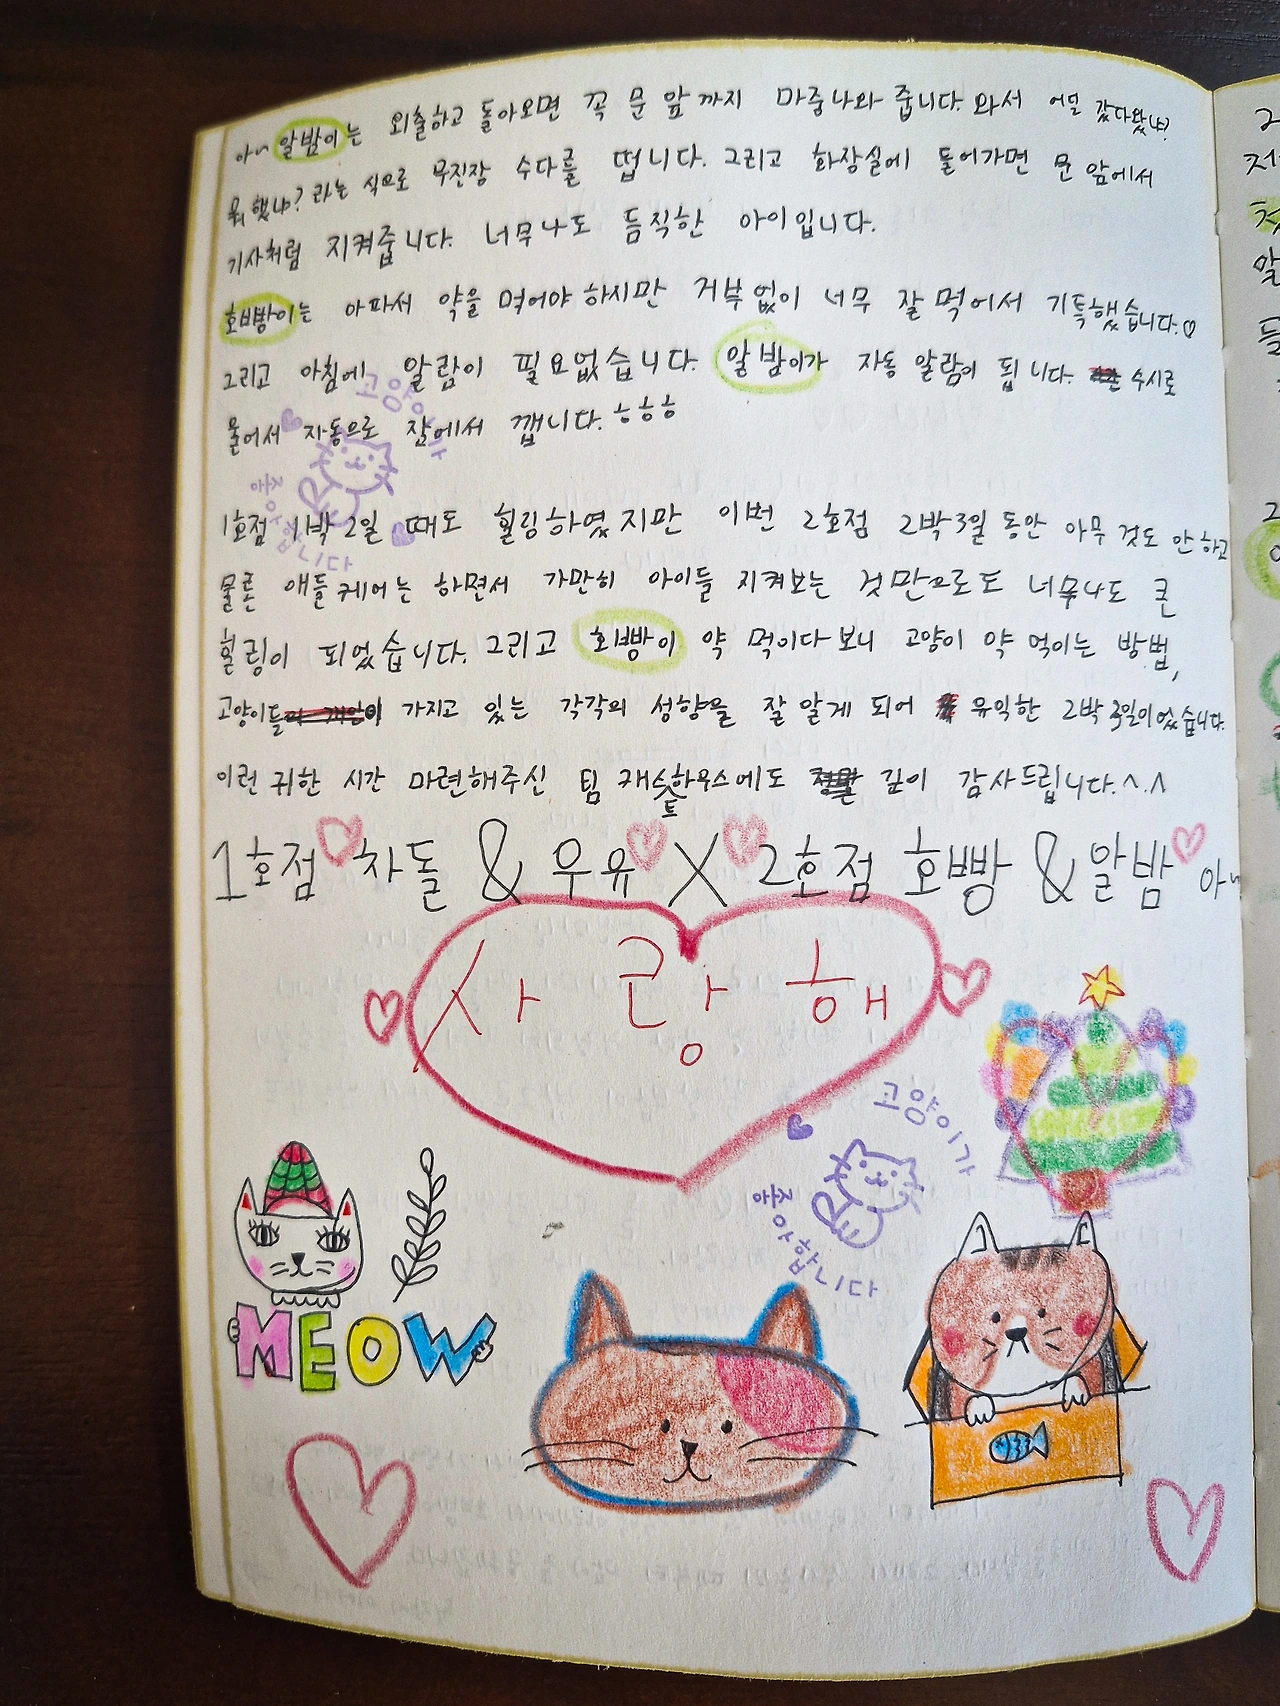 아니 알밤이는 외출하고 돌아오면 꼭 문 앞까지 마중나와 줍니다. 와서 어딜 갔다왔냐?
뭐했냐? 라는 식으로 무진장 수다를 떱니다. 그리고 화장실에 들어가면 문 앞에서
기사처럼 지켜줍니다. 너무나도 듬직한 아이입니다.
호빵이는 아파서 약을 먹어야 하지만 거부없이 너무 잘 먹어서 기특했습니다.♡
그리고 아침에 알람이 필요없습니다. 알밤이가 자동 알람이 됩니다. 수시로
물어서 자동으로 잠에서 깹니다. ㅎㅎㅎ
고양이가
좋아합니다
1호점 1박 2일 때도 힐링하였지만 이번 2호점 2박3일 동안 아무 것도 안 하고
물론 애들 케어는 하면서 가만히 아이들 지켜보는 것만으로도 너무나도 큰
힐링이 되었습니다. 그리고 호빵이 약 먹이다 보니 고양이 약 먹이는 방법,
고양이들이 가지고 있는 각각의 성향을 잘 알게 되어 유익한 2박 3일이었습니다.
이런 귀한 시간 마련해주신 팀 캐스트하우스에도 깊이 감사드립니다.^.^
1호점 차돌 & 우유 X 2호점 호빵 & 알밤 아니
사랑해
고양이가
좋아합니다
MEOW